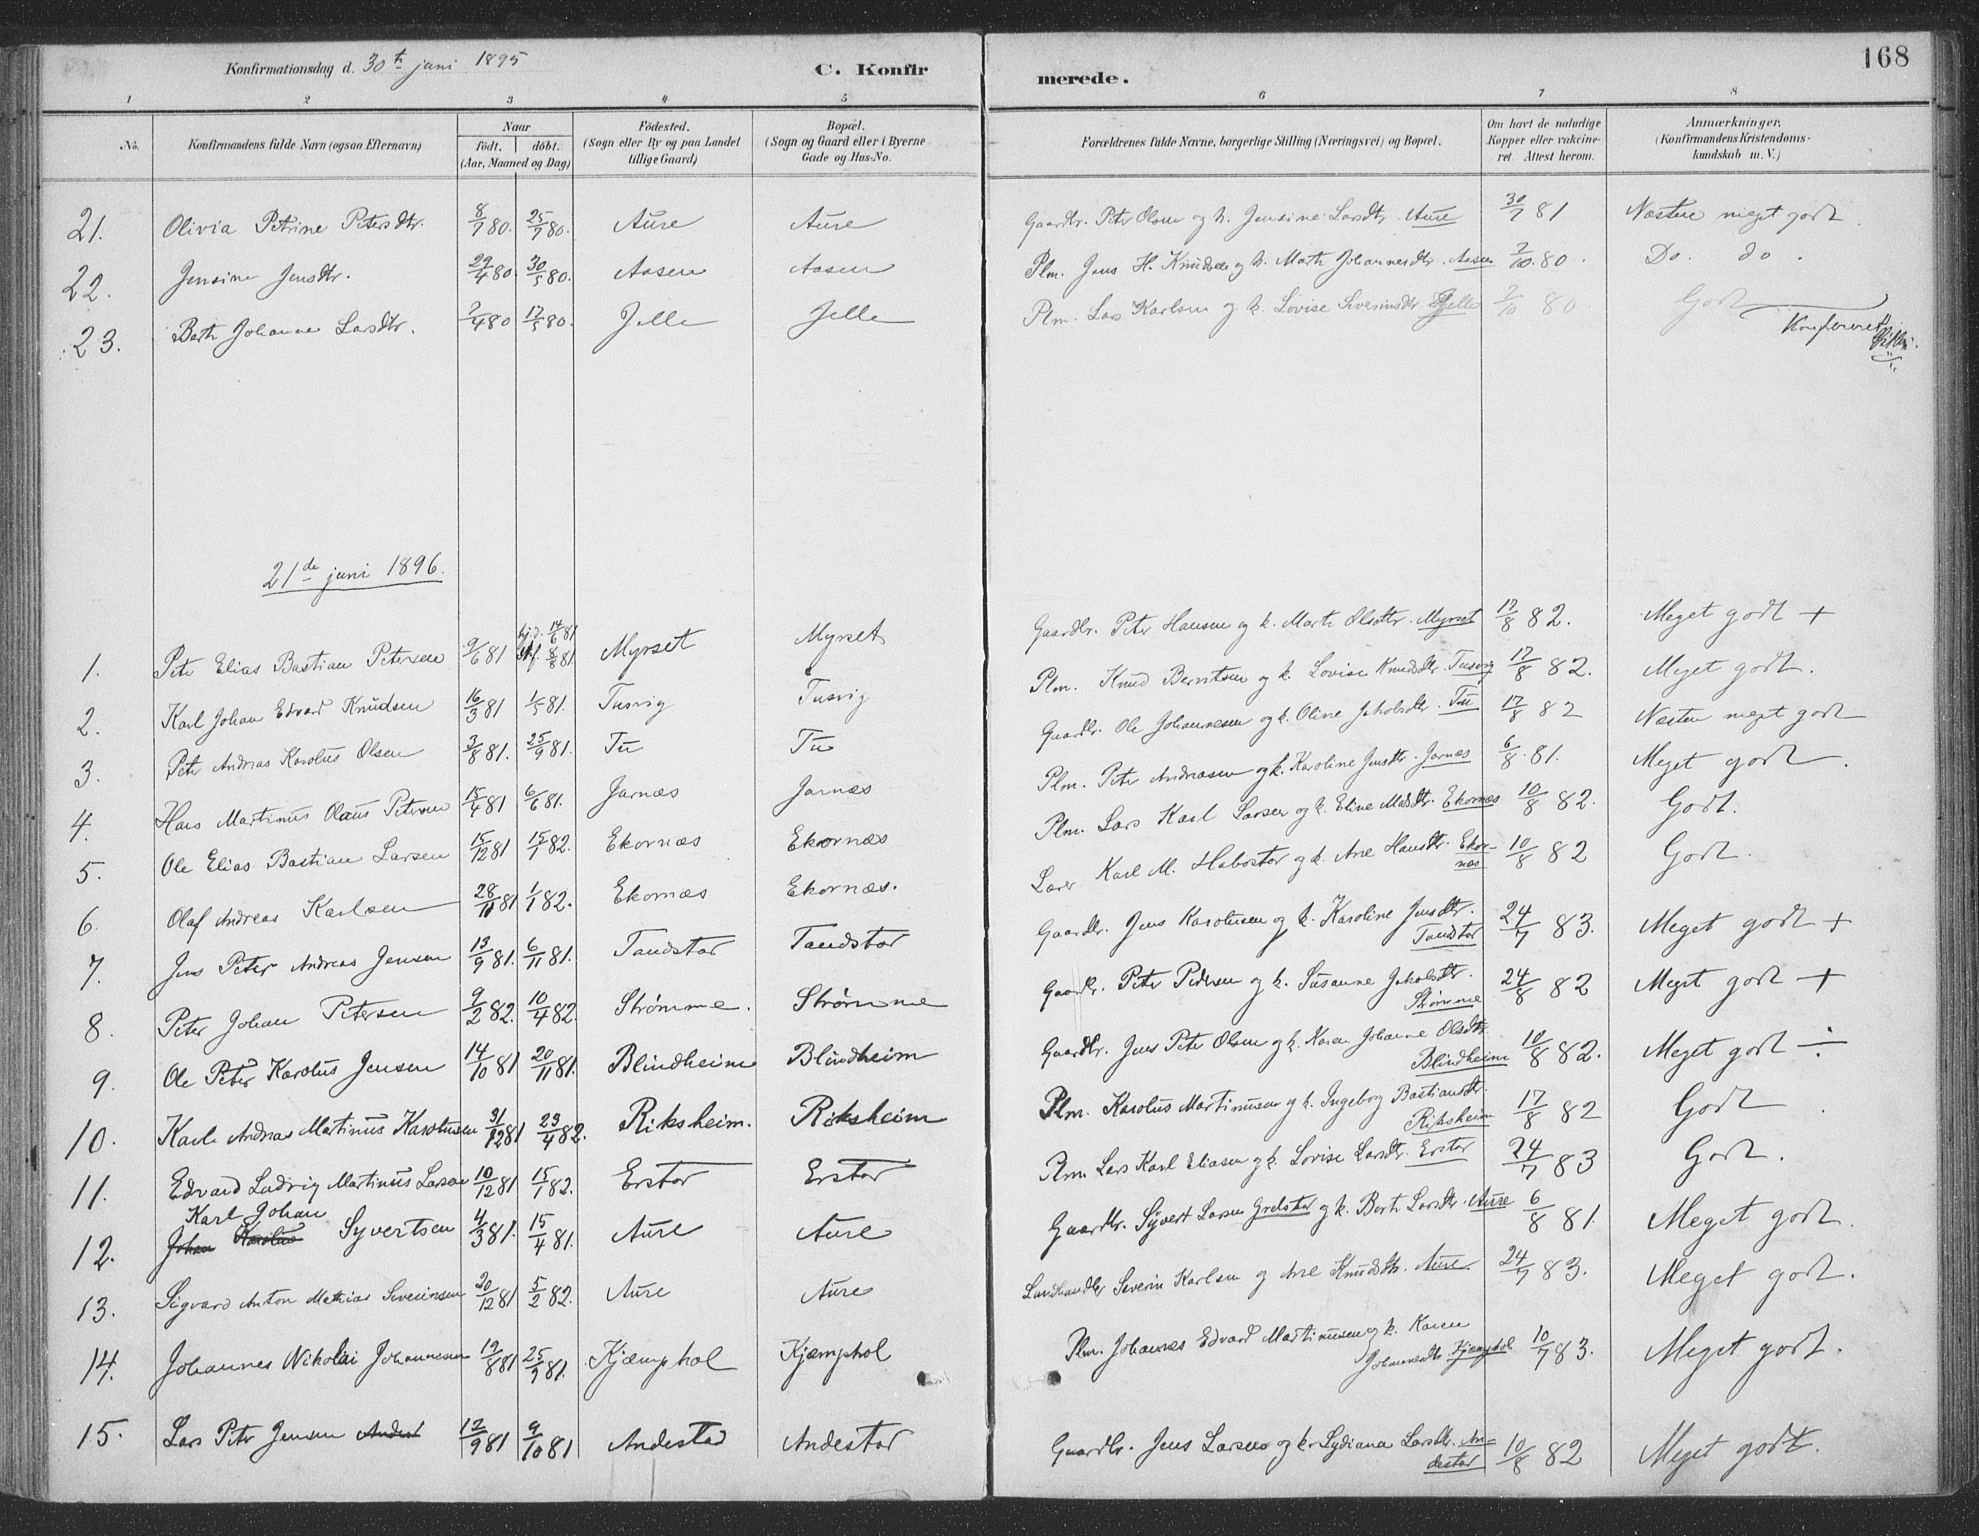 168
Konfirmationsdag d. 30te juni 1895 C. Konfirmerede.
1 2 3 4 5 6 7 8
No. Konfirmandens fulde Navn (ogsaa Efternavn) Naar født. døbt. (Aar, Maaned og Dag) Fødested. (Sogn eller By og paa Landet tillige Gaard) Bopæl. (Sogn og Gaard eller i Byerne Gade og Hus-No. Forældrenes fulde Navne, borgerlige Stilling (Næringsvei) og Bopæl. Om havt de naturlige Kopper eller vakcineret. Attest herom. Anmærkninger. (Konfirmandens Kristendomskundskab m. V.)
21. Olivia Petrine Petersdtr. 8/7 80. 25/7 80. Aure Aure Gaardbr. Peter Olsen og k. Jensine Larsdtr. Aure 30/7 81 Næsten meget godt
22. Jensine Jensdtr. 29/4 80. 30/5 80. Aasen Aasen Plm. Jens H. Knudsen og k. Marte Johannesdtr. Aasen 7/10. 80. Do. do.
23. Berte Johanne Larsdtr. 7/4 80 17/5 80. Jelle Jelle Plm. Lars Karlsen og k. Lovise Severinsdtr. Jelle 7/10 80 Godt
21de juni 1896.
1. Peter Elias Bastian Petersen 9/6 81 hjd. 14/6 81 Stf. 8/8 81. Myrset Myrset Gaardbr. Peter Hansen og k. Marte Olsdtr. Myrset 17/8 82. Meget godt +
2. Karl Johan Edvard Knudsen 16/3 81 1/5 81. Tusvig Tusvig Plm. Knud Berntsen og k. Lovise Knudsdtr. Tusvig 17/8 82. Meget godt.
3. Peter Andreas Karolus Olsen 3/8 81. 25/9 81. Tu Tu Gaardbr. Ole Johannesen og k. Oline Jakobsdtr. Tu 17/8 82 Næsten meget godt
4. Hans Martinus Olaus Petersen 15/4 81 6/6 81. Jarnæs Jarnæs Plm. Peter Andreasen og k. Karoline Jensdtr. Jarnæs 6/8. 81. Meget godt.
5. Ole Elias Bastian Larsen 15/12 81 15/1 82. Ekornæs Ekornæs Plm. Lars Karl Larsen og k. Eline Madsdtr. Ekornæs 10/8 82. Godt.
6. Olaf Andreas Karlsen 28/11 81 1/1 82. Ekornæs Ekornæs. Lærer Karl M. Habostad og k. Ane Hansdtr. Ekornæs 10/8 82 Godt.
7. Jens Peter Andreas Jensen 13/9 81. 6/11 81. Tandstad Tandstad Gaardbr. Jens Karolusen og k. Karoline Jensdtr. Tandstad 24/7 83. Meget godt +
8. Peter Johan Petersen 9/2 82. 10/4 82. Strømme. Strømme Gaardbr. Peter Pedersen og k. Susanne Jakobsdtr. Strømme 24/8 82 Meget godt +
9. Ole Peter Karolus Jensen 14/10 81 20/11 81. Blindheim Blindheim Gaardbr. Jens Peter Olsen og k. Karen Johanne Olsdtr. Blindheim 10/8 82. Meget godt ÷
10. Karl Andreas Martinus Karolusen 31/12 81 23/4 82. Riksheim. Riksheim Plm. Karolus Martinusen og k. Ingeborg Bastiansdtr. Riksheim 17/8 82 Godt.
11. Edvard Ludvig Martinus Larsen 10/12 81 15/1 82. Erstad Erstad Plm. Lars Karl Eliasen og k. Lovise Larsdtr. Erstad 24/7 83 Godt.
12. Karl Johan Johan Karolus Syvertsen 4/3 81. 15/4 81. Aure Aure Gaardbr. Syvert Larsen Grebstad og k. Berte Larsdtr. Aure 6/8 81. Meget godt.
13. Sigvard Anton Mathias Severinsen 20/12 81 5/2 82. Aure Aure Landhandler Severin Karlsen og Ane Knudsdtr. Aure 24/7 83. Meget godt.
14. Johannes Nikolai Johannesen 19/8 81 25/9 81. Kjæmphol Kjæmphol Plm. Johannes Edvard Martinusen og k. Karen Johannesdtr. Kjæmphol 10/7 83. Meget godt.
15. Lars Peter Jensen 12/9 81 9/10 81 Andestad Andestad Gaardbr. Jens Larsen og k. Lydiana Larsdtr. Andestad 10/8 82 Meget godt.